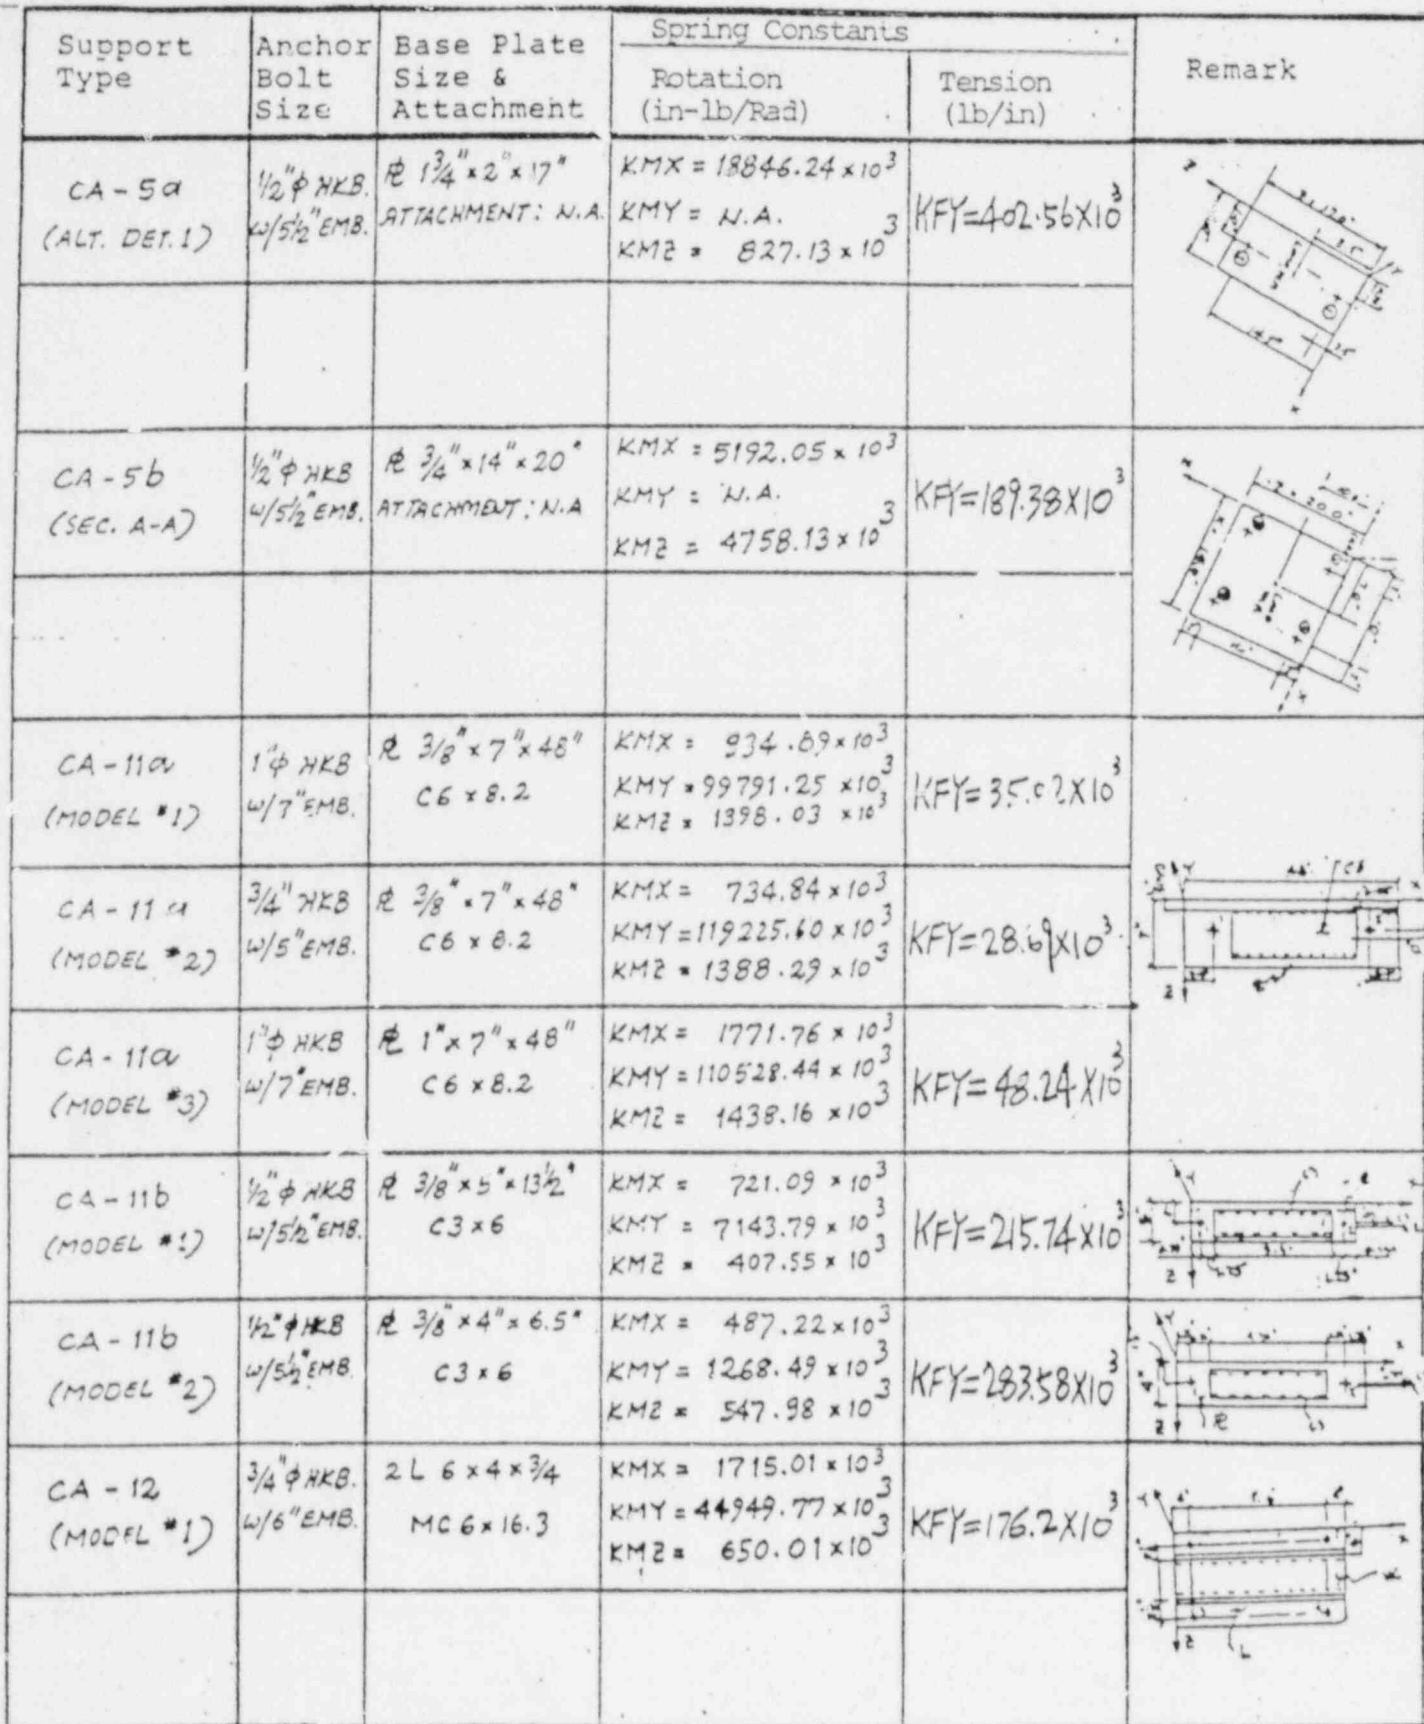 Support Type
Anchor Bolt Size
Base Plate Size & Attachment
Spring Constants
Rotation (in-lb/Rad)
Tension (lb/in)
Remark
CA-5a
(ALT. DET.1)
1/2"φ HKB.
w/5 1/2" EMB.
PL 1 3/4" x 2" x 17"
ATTACHMENT: N.A.
KMX = 18846.24 x 10³
KMY = N.A.
KMZ = 827.13 x 10³
KFY=402.56X10³
CA-5b
(SEC. A-A)
1/2"φ HKB
w/5 1/2" EMB.
PL 3/4" x 14" x 20"
ATTACHMENT: N.A
KMX = 5192.05 x 10³
KMY = N.A.
KMZ = 4758.13 x 10³
KFY=189.38X10³
CA-11a
(MODEL #1)
1"φ HKB
w/7" EMB.
PL 3/8" x 7" x 48"
C6 x 8.2
KMX = 934.89 x 10³
KMY = 99791.25 x 10³
KMZ = 1398.03 x 10³
KFY=35.02X10³
CA-11a
(MODEL #2)
3/4" HKB
w/5" EMB.
PL 3/8" x 7" x 48"
C6 x 8.2
KMX = 734.84 x 10³
KMY = 119225.60 x 10³
KMZ = 1388.29 x 10³
KFY=28.69X10³
CA-11a
(MODEL #3)
1"φ HKB
w/7" EMB.
PL 1" x 7" x 48"
C6 x 8.2
KMX = 1771.76 x 10³
KMY = 110528.44 x 10³
KMZ = 1438.16 x 10³
KFY=48.24X10³
CA-11b
(MODEL #1)
1/2"φ HKB
w/5 1/2" EMB.
PL 3/8" x 5" x 13 1/2"
C3 x 6
KMX = 721.09 x 10³
KMY = 7143.79 x 10³
KMZ = 407.55 x 10³
KFY=215.74X10³
CA-11b
(MODEL #2)
1/2"φ HKB
w/5 1/2" EMB.
PL 3/8" x 4" x 6.5"
C3 x 6
KMX = 487.22 x 10³
KMY = 1268.49 x 10³
KMZ = 547.98 x 10³
KFY=283.58X10³
CA-12
(MODEL #1)
3/4"φ HKB.
w/6" EMB.
2 L 6 x 4 x 3/4
MC 6 x 16.3
KMX = 1715.01 x 10³
KMY = 44949.77 x 10³
KMZ = 650.01 x 10³
KFY=176.2X10³